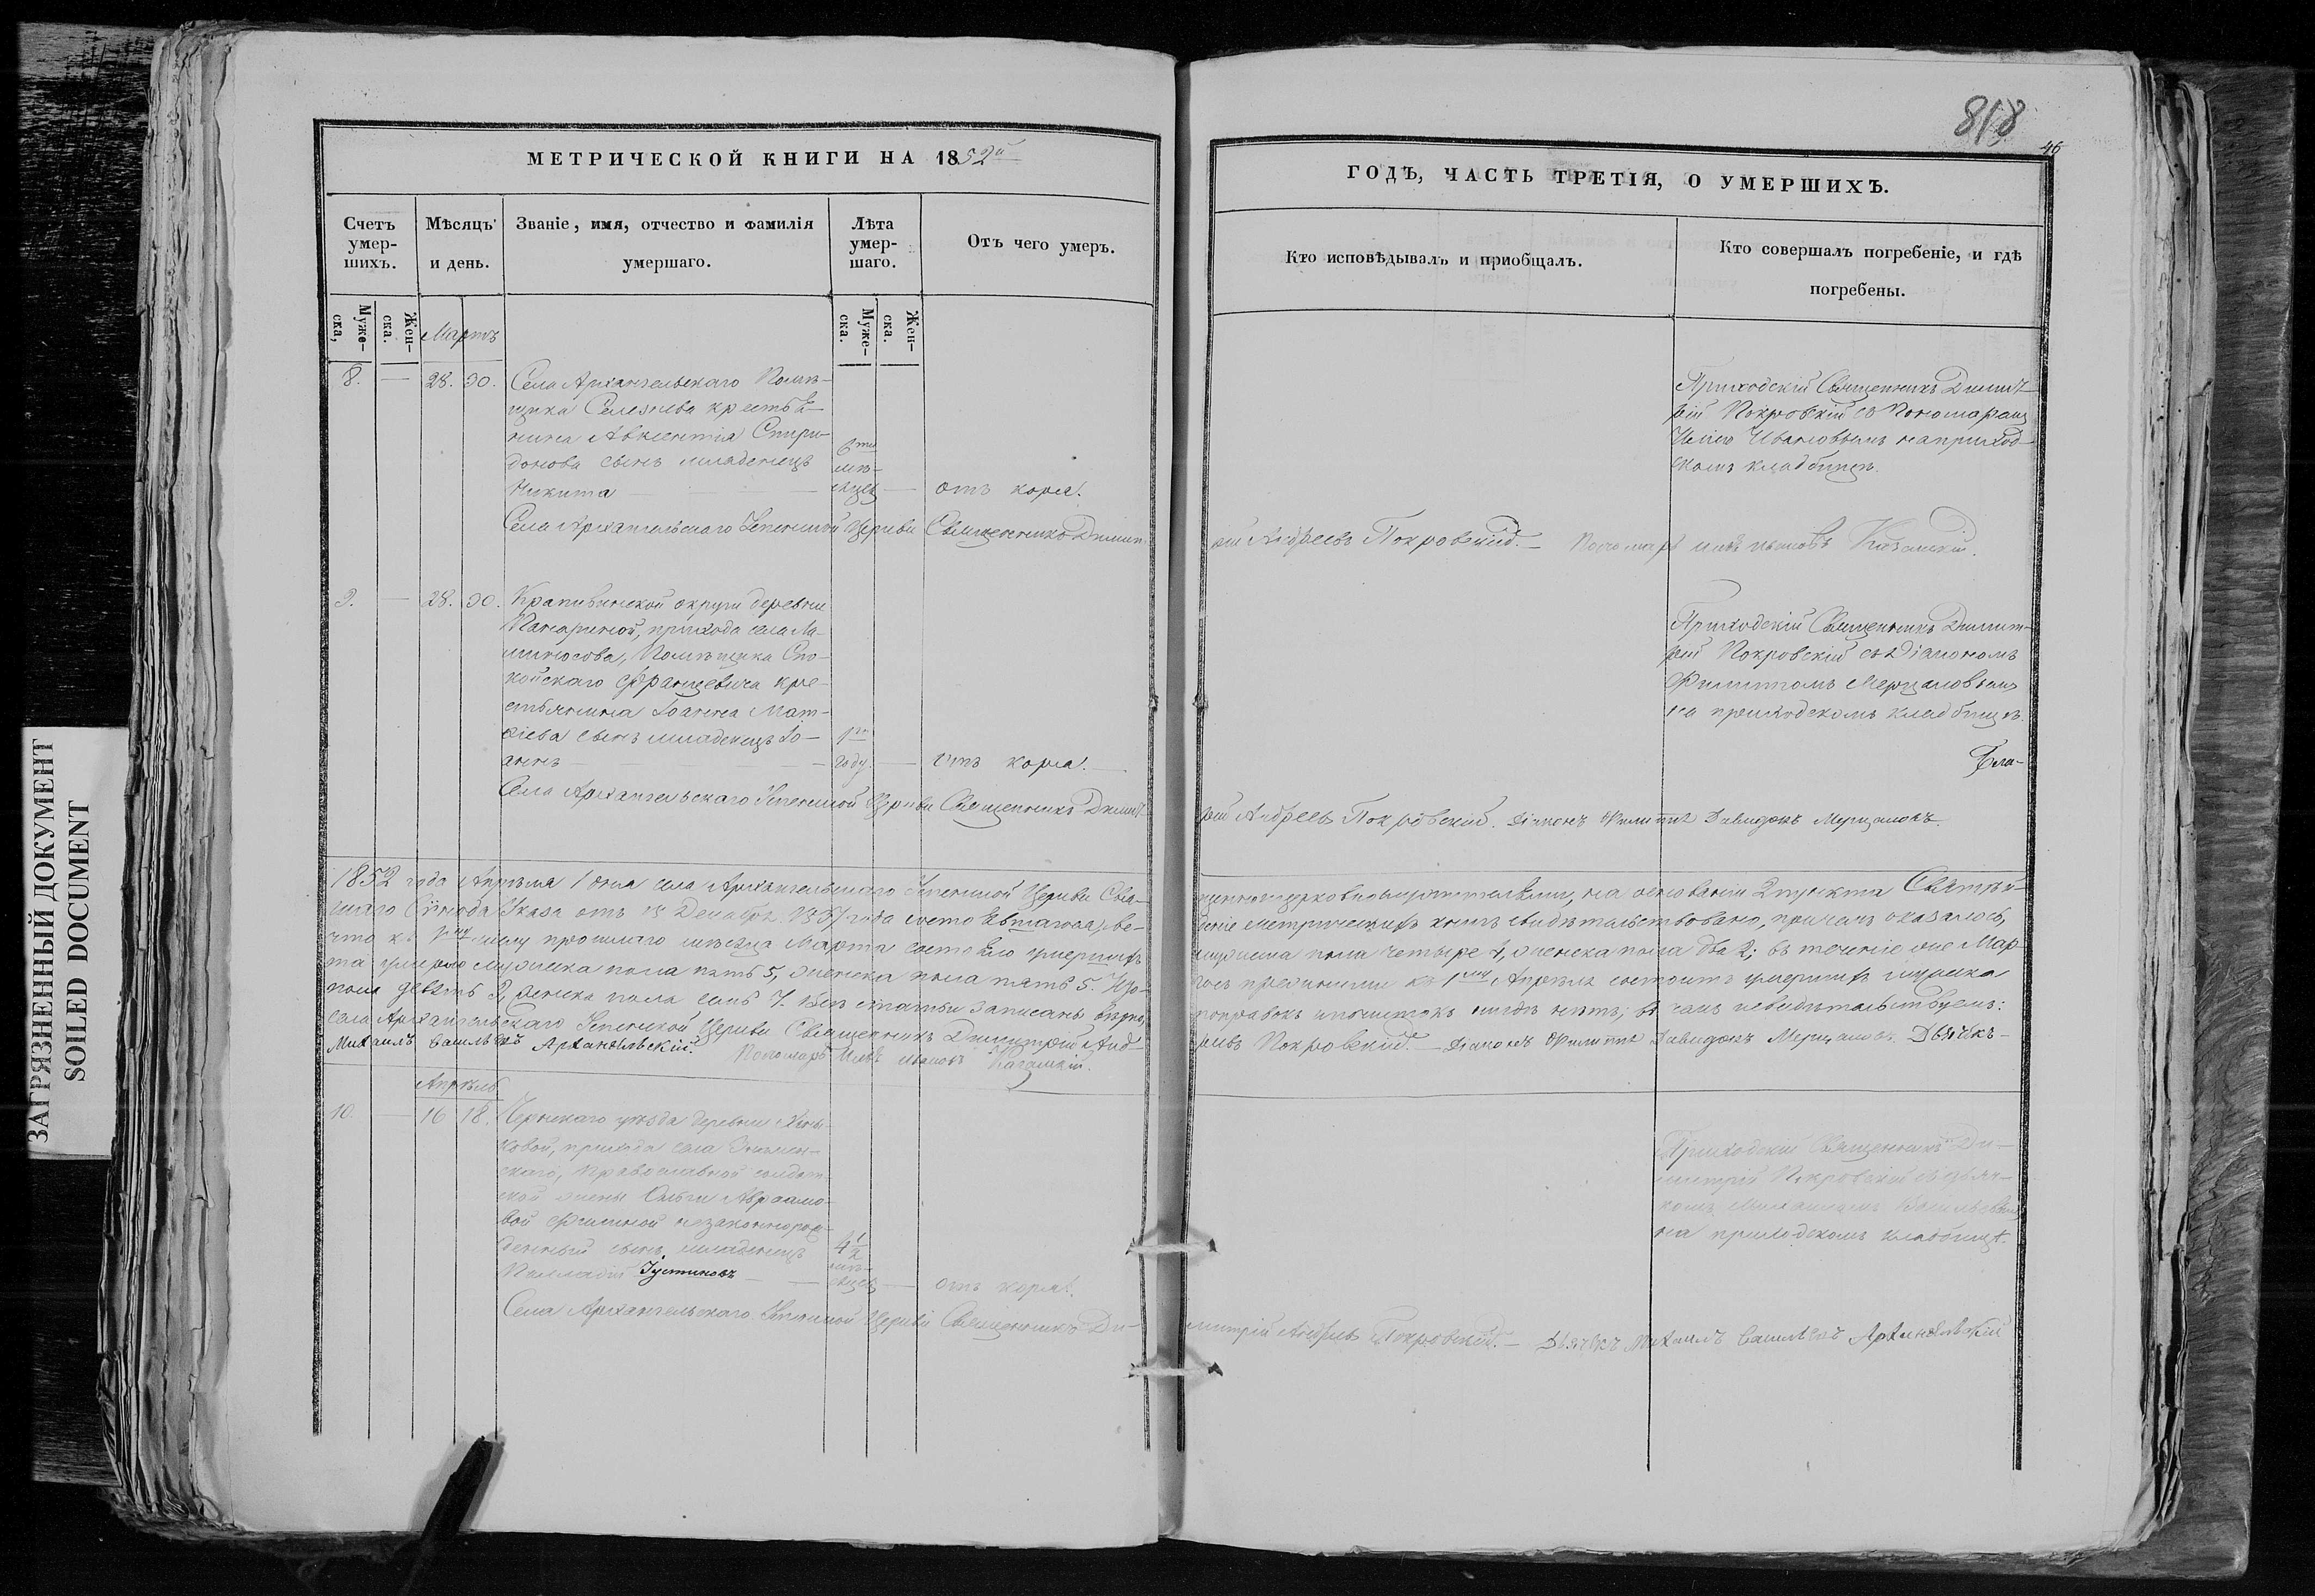 818
46
МЕТРИЧЕСКОЙ КНИГИ НА 1852й
ГОДЪ, ЧАСТЬ ТРЕТІЯ, О УМЕРШИХЪ.
Счетъ
умер-
шихъ.
Мѣсяцъ
и день.
Званіе, имя, отчество и фамилія
умершаго.
Лѣта
умер-
шаго.
Отъ чего умеръ.
Кто исповѣдывалъ и приобщалъ.
Кто совершалъ погребеніе, и гдѣ
погребены.
Муже-
ска,
Жен-
ска.
Муже-
ска.
Жен-
ска.
Мартъ
8. — 28. 30.
Села Архангельскаго Помѣ-
щика Селезнева крестья-
нина Авксентія Спири-
донова сынъ младенецъ
Никита
6ти
мѣ-
сяцевъ
отъ кори.
Приходскій Священникъ Димит-
рій Покровскій съ Пономаремъ
Ивановымъ на приход-
скомъ кладбищѣ.
Села Архангельскаго Успенской Церкви Священникъ Димит-
рій Андреевъ Покровскій. — Пономарь Ивановъ
9. — 28. 30.
Крапивенской округи деревни
прихода села Ла-
Помѣщика
кре-
стьянина Іоанна Мат-
ѳіева сынъ младенецъ Іо-
аннъ
1го
году.
отъ кори.
Приходскій Священникъ Димит-
рій Покровскій съ Діакономъ
Филиппомъ Мерцаловымъ
на приходскомъ кладбищѣ.
Села Архангельскаго Успенской Церкви Священникъ Димит-
рій Андреевъ Покровскій. Діаконъ Филиппъ Давидовъ Мерцаловъ.
1852 года Апрѣля 1 дня села Архангельскаго Успенской Церкви Свя-
щенноцерковнослужителями, на основаніи 2 пункта Святѣй-
шаго Сѵнода Указа отъ Декабря года ве-
деніе метрическихъ книгъ свидѣтельствовано, причемъ оказалось,
что къ 1му числу прошлаго мѣсяца Марта состояло умершихъ
мужеска пола четыре 4, женска пола два 2; въ теченіе Мар-
та умерло мужеска пола пять 5, женска пола пять 5.
съ прежними къ 1му Апрѣля состоитъ умершихъ мужеска
пола девять 9, женска пола семь 7. Всѣ статьи записаны вѣрно,
поправокъ и почистокъ нигдѣ нѣтъ; въ чемъ и свидѣтельствуемъ:
села Архангельскаго Успенской Церкви Священникъ Димитрій Анд-
реевъ Покровскій. — Діаконъ Филиппъ Давидовъ Мерцаловъ. Дьячекъ —
Михаилъ Васильевъ Архангельскій. Пономарь Ивановъ
Апрѣль
10. — 16 18.
Чернскаго уѣзда деревни
прихода села Знамен-
скаго, Православной солдат-
ской жены Ольги Авраамо-
вой незаконнорож-
денный сынъ младенецъ
Палладій Іустиновъ
4 1/2
мѣ-
сяцевъ
отъ кори.
Приходскій Священникъ Ди-
митрій Покровскій съ дьяч-
комъ Михаиломъ Васильевымъ
на приходскомъ кладбищѣ.
Села Архангельскаго Успенской Церкви Священникъ Ди-
митрій Андреевъ Покровскій. — Дьячекъ Михаилъ Васильевъ Архангельскій
ЗАГРЯЗНЕННЫЙ ДОКУМЕНТ
SOILED DOCUMENT